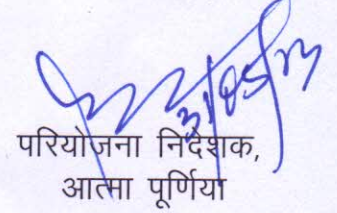 31/05/23
परियोजना निदेशक,
आत्मा पूर्णिया